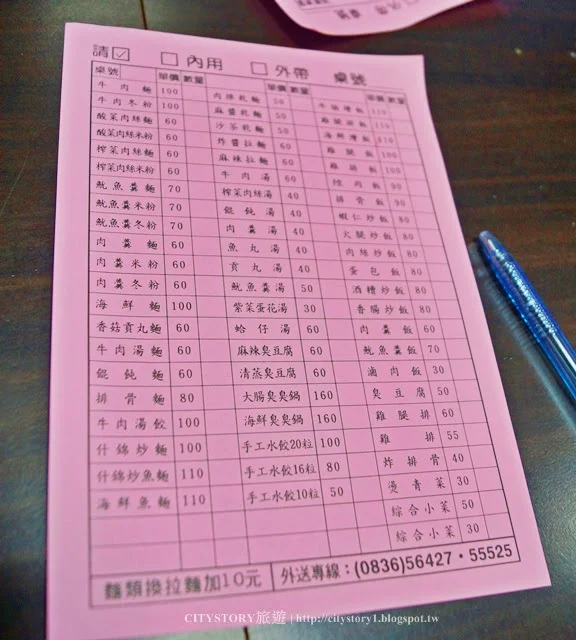 請☑ □內用 □外帶 桌號
桌號 單價 數量
牛肉麵 100
牛肉冬粉 100
酸菜肉絲麵 60
酸菜肉絲米粉 60
榨菜肉絲麵 60
榨菜肉絲米粉 60
魷魚羹麵 70
魷魚羹米粉 70
魷魚羹冬粉 70
肉羹麵 60
肉羹米粉 60
肉羹冬粉 60
海鮮麵 100
香菇貢丸麵 60
牛肉湯麵 60
餛飩麵 60
排骨麵 80
牛肉湯餃 100
什錦炒麵 100
什錦炒魚麵 110
海鮮魚麵 110
單價 數量
肉燥乾麵 50
麻醬乾麵 50
沙茶乾麵 50
炸醬拉麵 60
麻辣拉麵 60
牛肉湯 60
榨菜肉絲湯 40
餛飩湯 40
肉羹湯 40
魚丸湯 40
貢丸湯 40
魷魚羹湯 50
紫菜蛋花湯 30
蛤仔湯 60
麻辣臭豆腐 60
清蒸臭豆腐 60
大腸臭臭鍋 160
海鮮臭臭鍋 160
手工水餃20粒 100
手工水餃16粒 80
手工水餃10粒 50
單價 數量
牛腩燴飯 110
海鮮燴飯 110
雞腿飯 100
雞排飯 100
焢肉飯 90
排骨飯 90
蝦仁炒飯 80
火腿炒飯 80
肉絲炒飯 80
蛋包飯 80
酒糟炒飯 80
香腸炒飯 80
肉羹飯 60
魷魚羹飯 70
滷肉飯 30
臭豆腐 50
雞腿排 60
雞排 55
炸排骨 40
燙青菜 30
綜合小菜 50
綜合小菜 30
麵類換拉麵加10元 外送專線：(0836)56427・55525
CITYSTORY旅遊 | http://citystory1.blogspot.tw